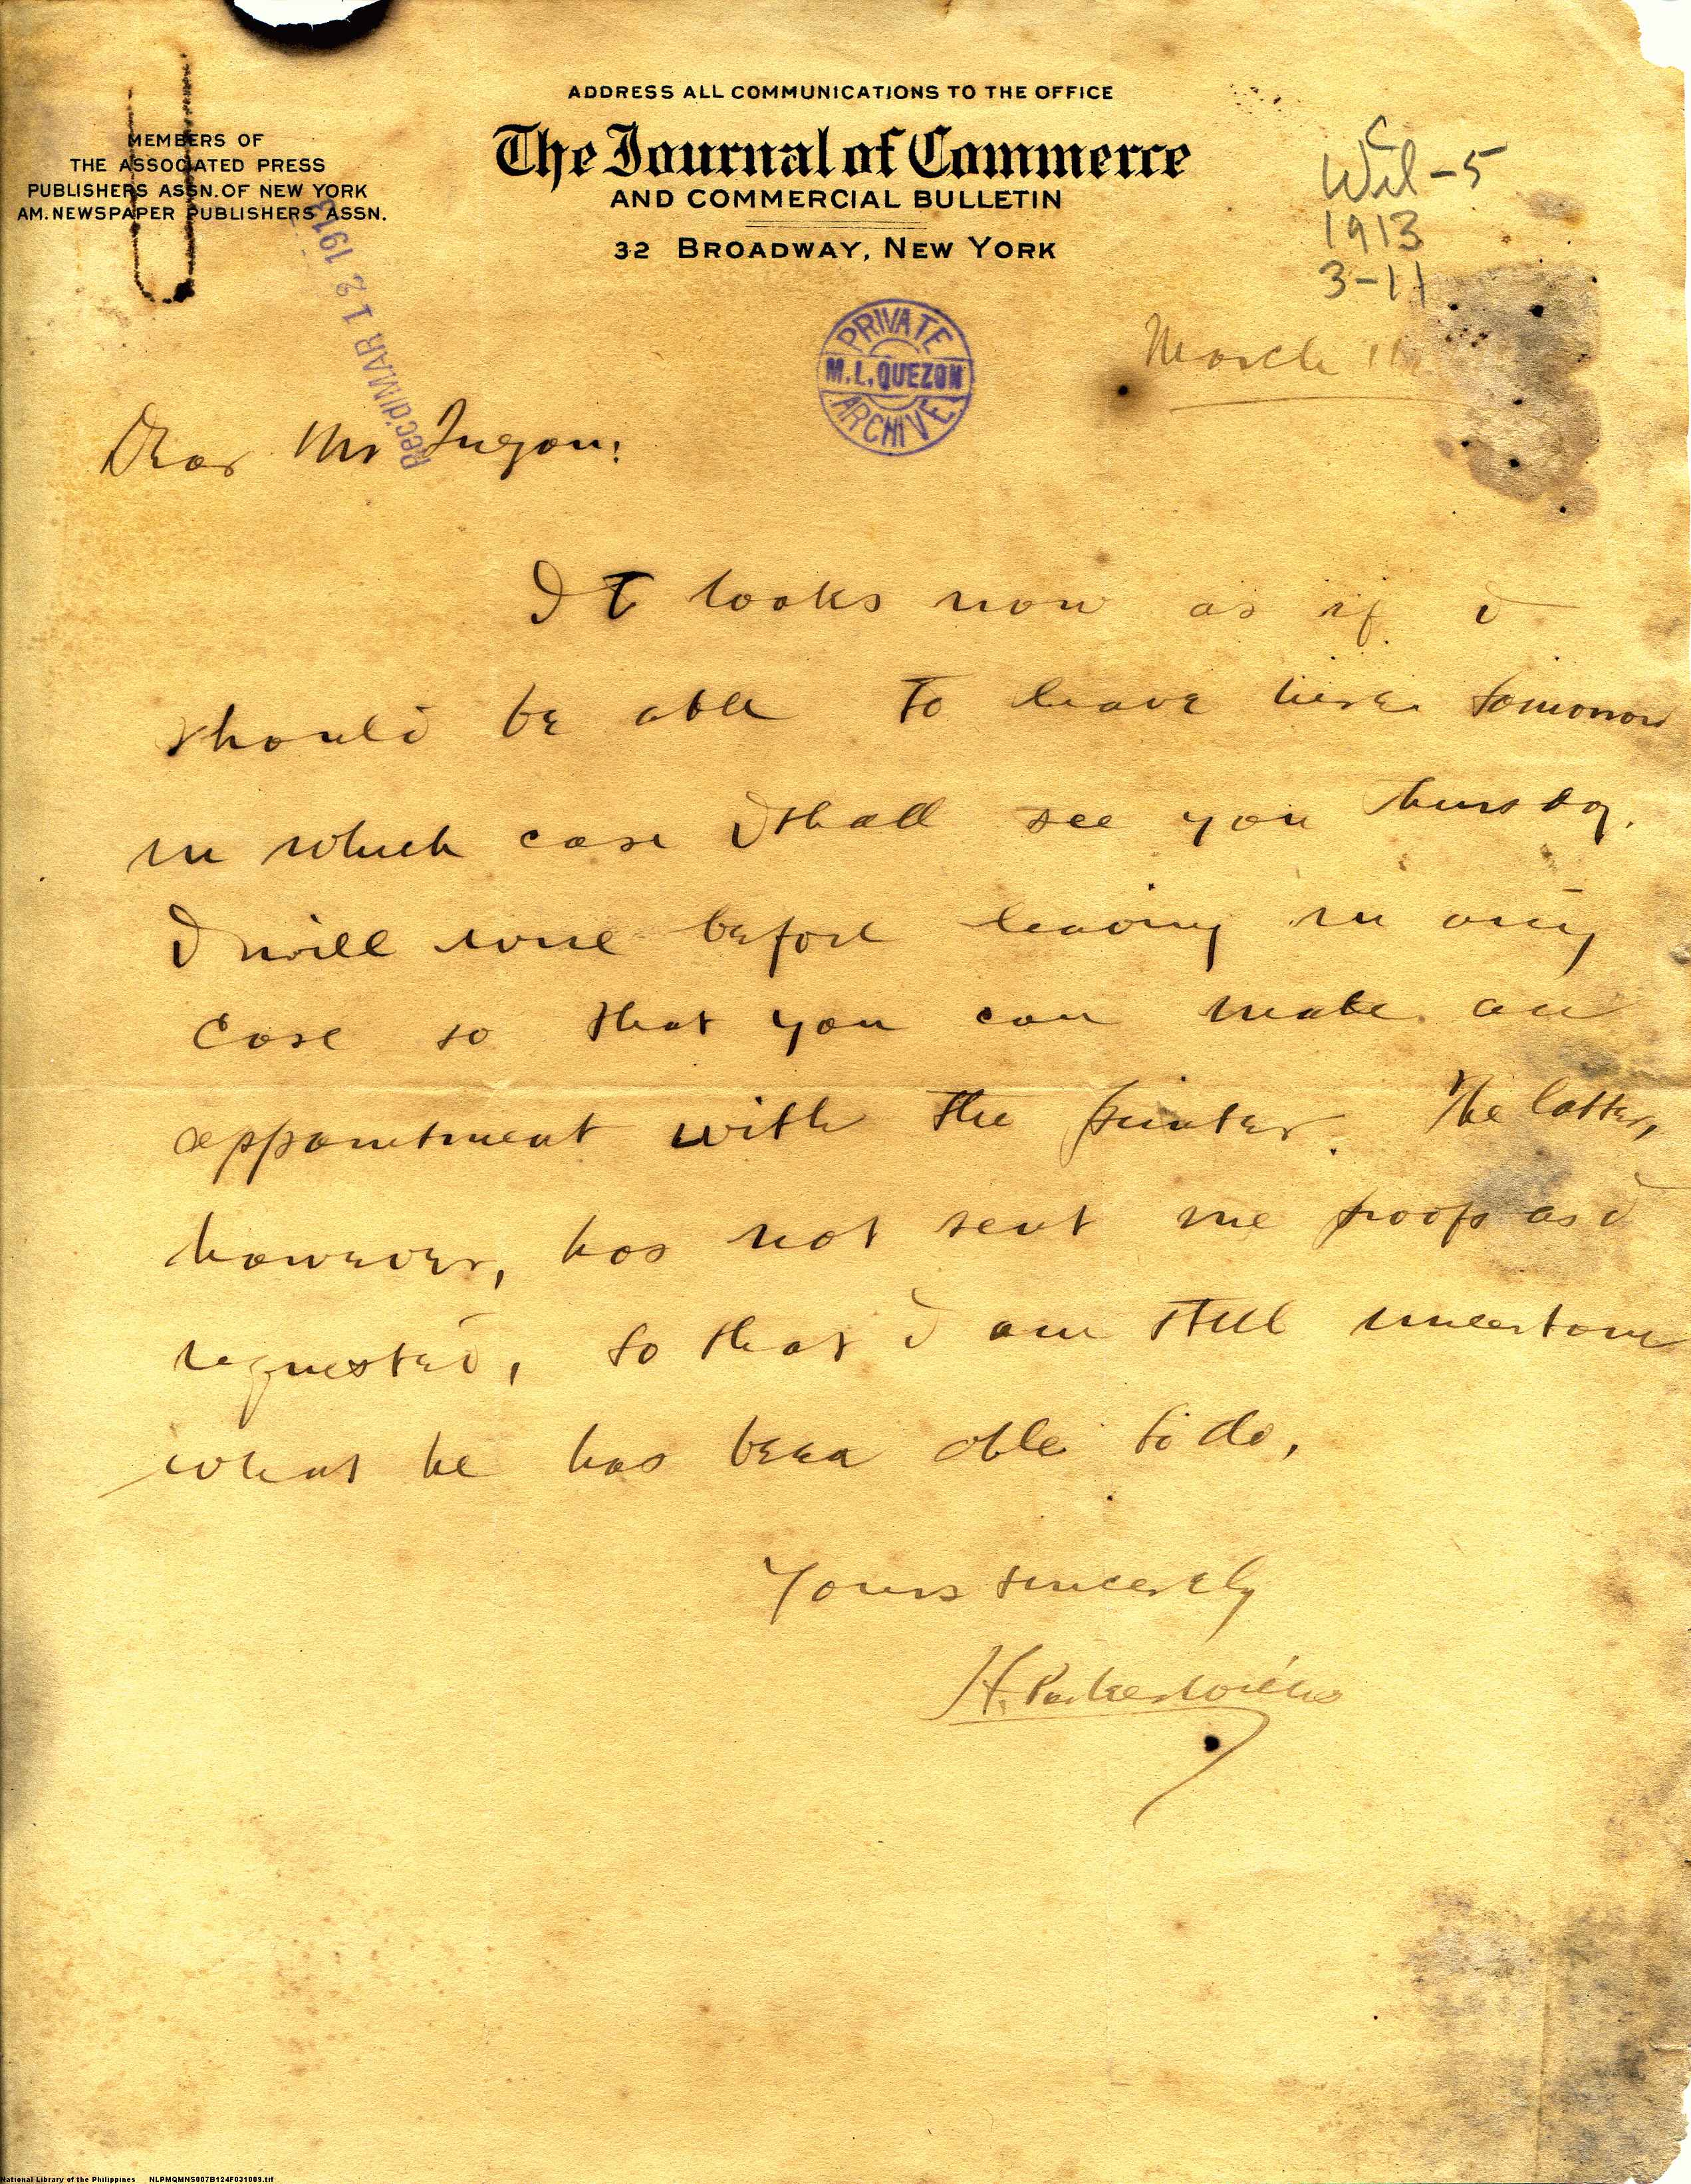 ADDRESS ALL COMMUNICATIONS TO THE OFFICE
MEMBERS OF
THE ASSOCIATED PRESS
PUBLISHERS ASSN. OF NEW YORK
AM. NEWSPAPER PUBLISHERS ASSN.
The Journal of Commerce
AND COMMERCIAL BULLETIN
32 BROADWAY, NEW YORK
Wil-5
1913
3-11
Rec'd MAR 12 1913
PRIVATE
M.L. QUEZON
ARCHIVE
March 11
Dear Mr Quezon:
It looks now as if I
should be able to leave here tomorrow
in which case I shall see you Thursday.
I will wire before leaving in any
case so that you can make an
appointment with the printer. The latter,
however, has not sent me proofs as I
requested, so that I am still uncertain
what he has been able to do.
Yours sincerely
H. Parker Willis
National Library of the Philippines NLPMQMNS007B124F031009.tif